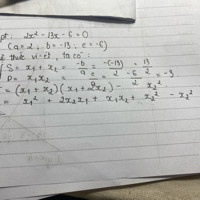 pt: 2x² - 13x - 6 = 0
(a = 2; b = -13; c = -6)
thức vi-ét, ta có:
S = x₁ + x₂ = -b/a = -(-13)/2 = 13/2
P = x₁x₂ = c/a = -6/2 = -3
= (x₁ + x₂)(x₁ + 2x₂) - x₂²
= x₁² + 2x₂x₁ + x₁x₂ + x₂² - x₂²